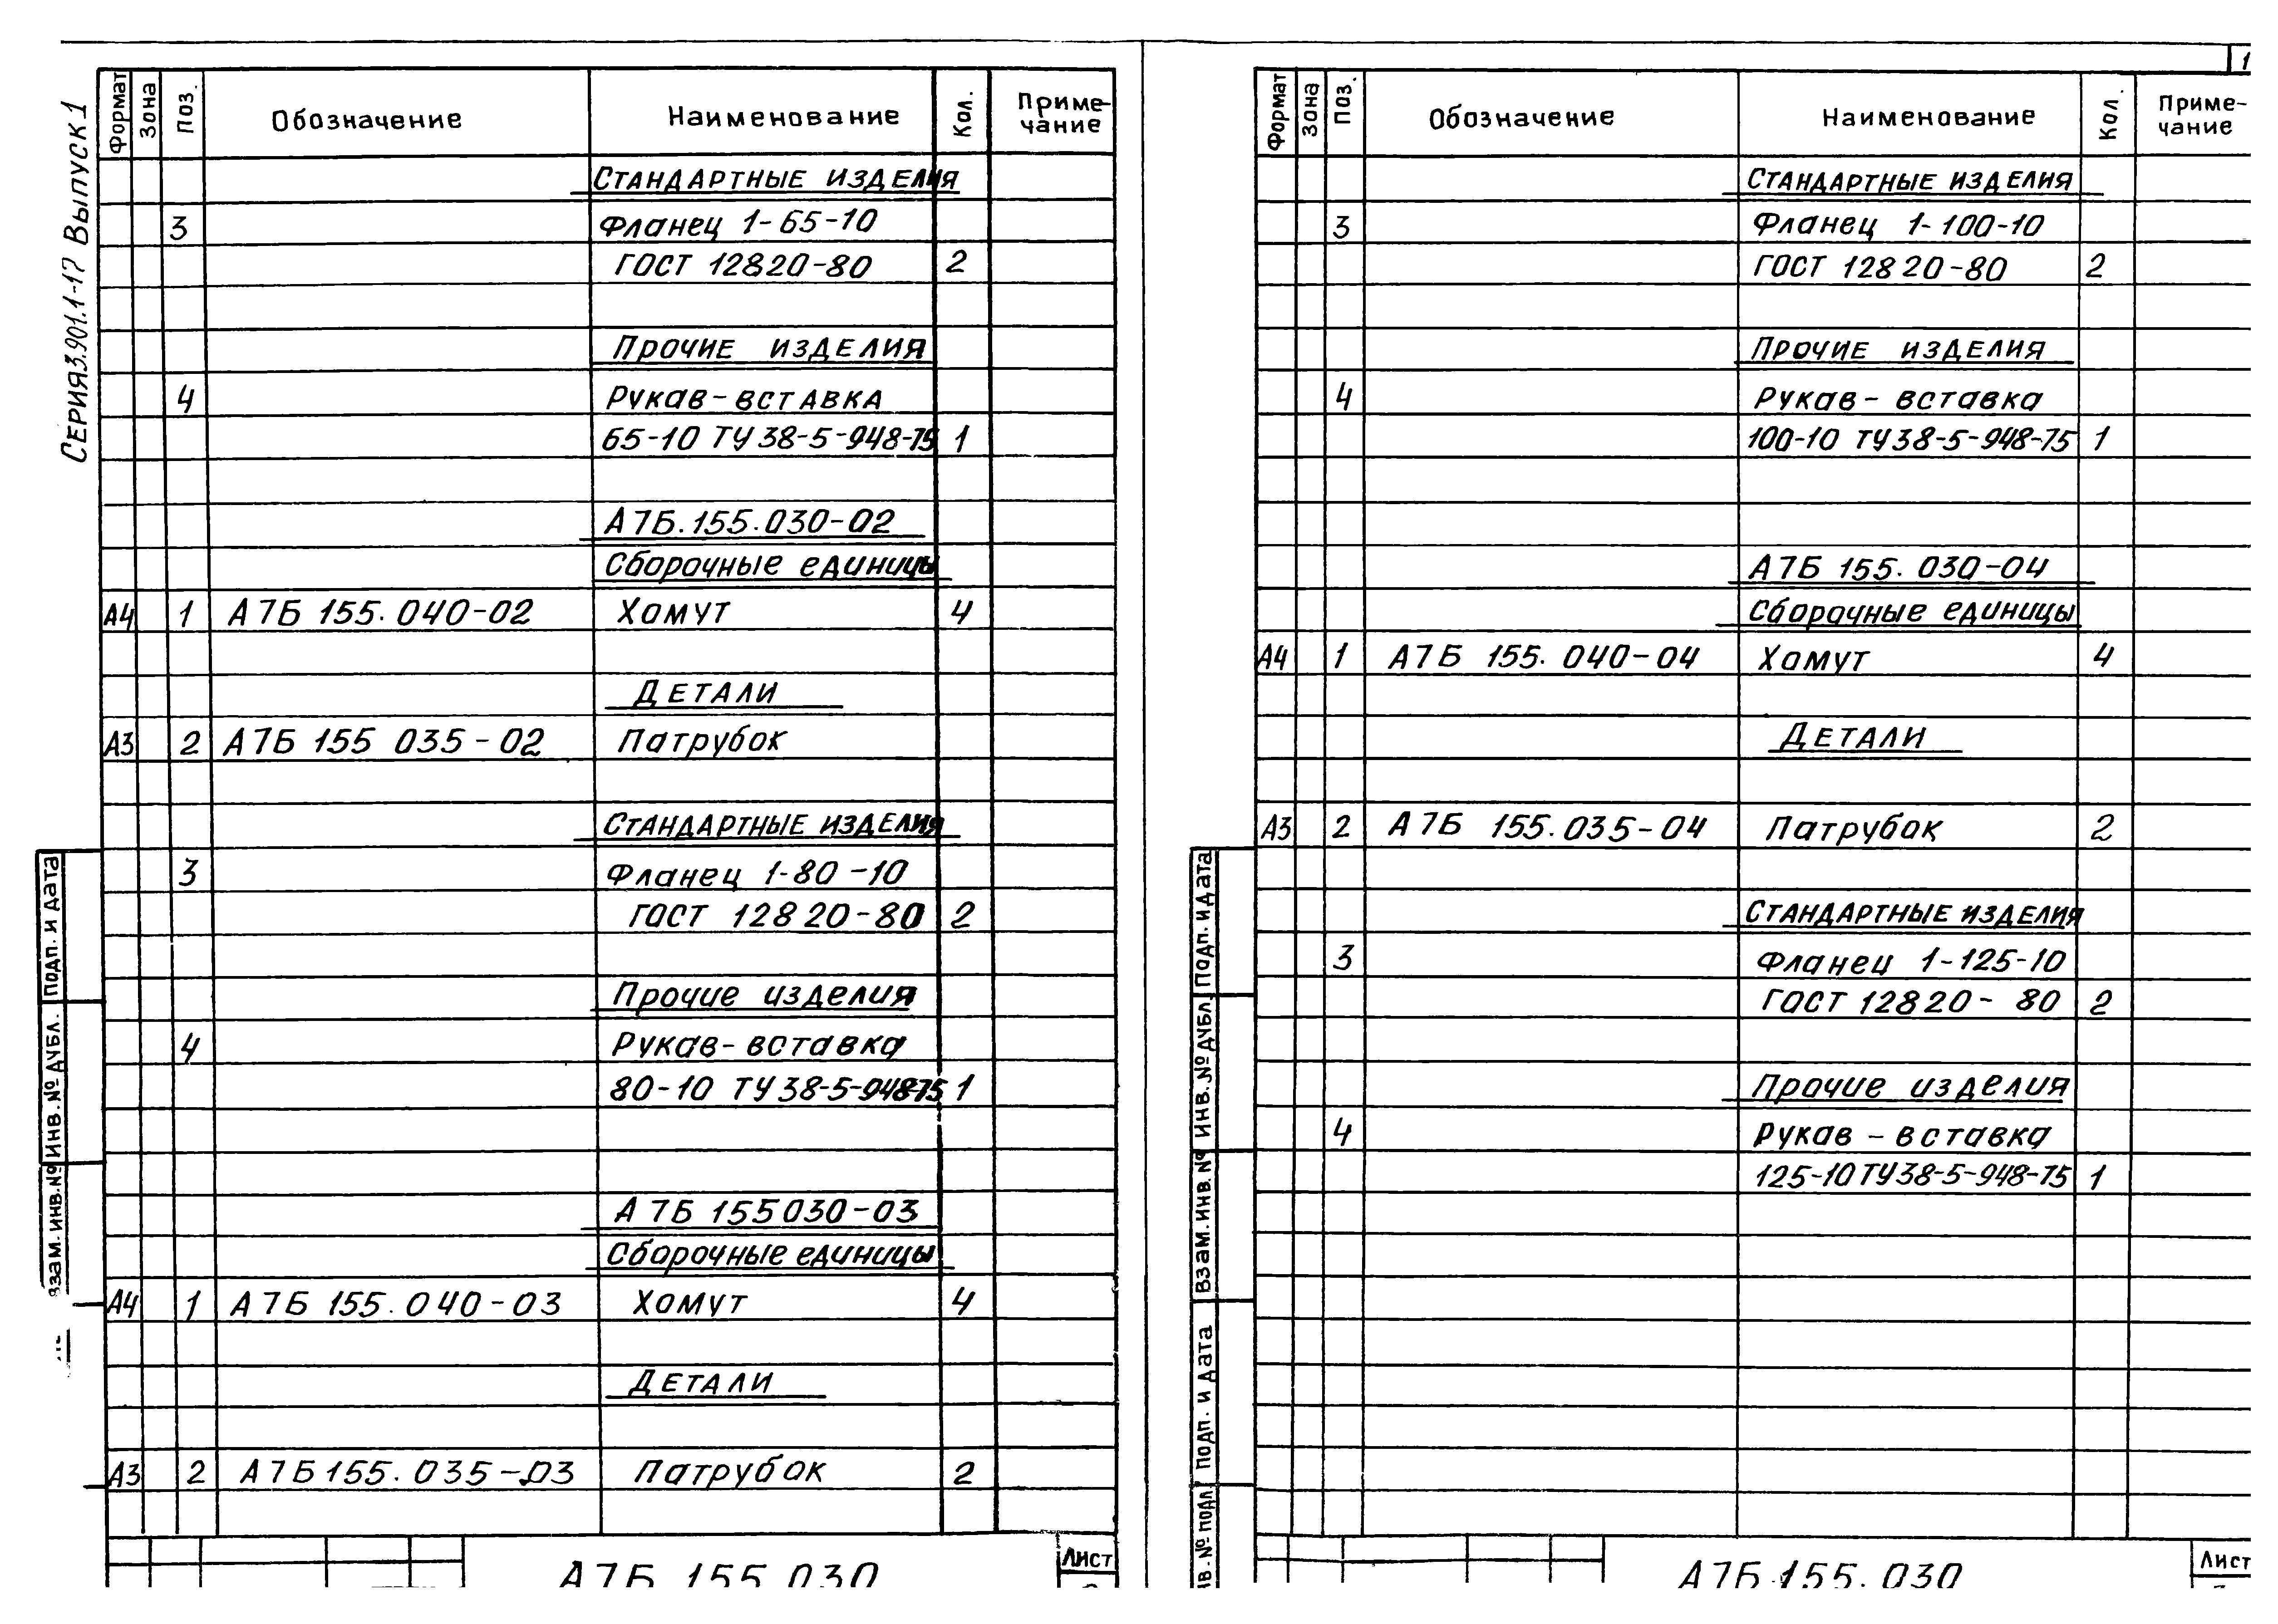 Серия 3.901.1-17 Выпуск 1
Формат Зона Поз. Обозначение Наименование Кол. Приме-
чание
Стандартные изделия
3 Фланец 1-65-10
ГОСТ 12820-80 2
Прочие изделия
4 Рукав-вставка
65-10 ТУ 38-5-948-75 1
А7Б.155.030-02
Сборочные единицы
А4 1 А7Б 155.040-02 Хомут 4
Детали
А3 2 А7Б 155 035-02 Патрубок
Стандартные изделия
3 Фланец 1-80-10
ГОСТ 12820-80 2
Прочие изделия
4 Рукав-вставка
80-10 ТУ 38-5-948-75 1
А7Б 155 030-03
Сборочные единицы
А4 1 А7Б 155.040-03 Хомут 4
Детали
А3 2 А7Б 155.035-03 Патрубок 2
Подп. и дата
Инв. № дубл.
Взам. инв. №
А7Б 155 030
Лист
1
Формат Зона Поз. Обозначение Наименование Кол. Приме-
чание
Стандартные изделия
3 Фланец 1-100-10
ГОСТ 12820-80 2
Прочие изделия
4 Рукав-вставка
100-10 ТУ 38-5-948-75 1
А7Б 155.030-04
Сборочные единицы
А4 1 А7Б 155.040-04 Хомут 4
Детали
А3 2 А7Б 155.035-04 Патрубок 2
Стандартные изделия
3 Фланец 1-125-10
ГОСТ 12820-80 2
Прочие изделия
4 Рукав-вставка
125-10 ТУ 38-5-948-75 1
Подп. и дата
Инв. № дубл.
Взам. инв. №
Подп. и дата
нв. № подл
А7Б.155.030
Лист